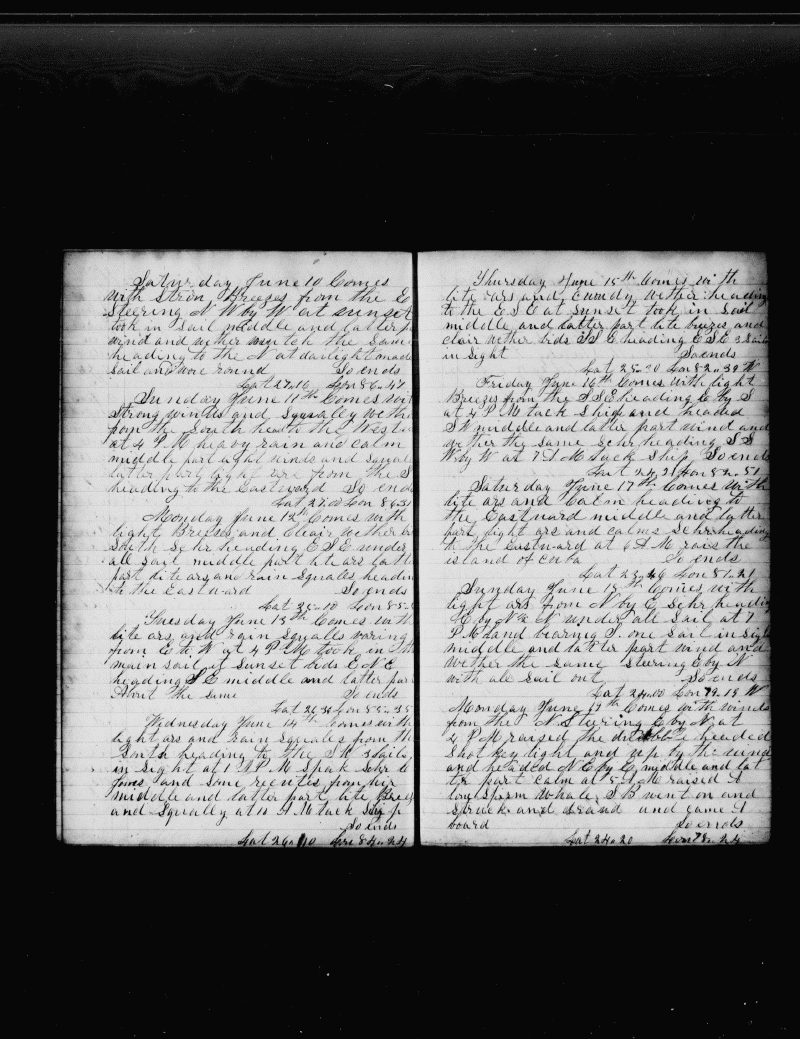 Saturday June 10 Comes
with Stron Breezes from the E
Steering N W by W at sunset
took in Sail middle and latter p
wind and wether much the Same
heading to the N at daylight made
Sail and wore round So ends
Lat 27.16 Lon 86.47
Sunday June 11th Comes wit
Strong winds and Squally wethe
from the South heading the
at 4 P M heavy rain and calm
middle part light winds and squale
latter part light are from the S
heading to the Eastward So ends
Lat 27.00 Lon 86.31
Monday June 12th Comes with
light Breeses and Clear wether
South Schr heading E S E under
all sail middle part lite ars latt
part lite ars and rain Squales headin
to the Eastward So ends
Lat 25.10 Lon 85
Tuesday June 13th Comes with
lite ars and rain Squalls varing
from E to W at 4 P M took in th
main sail at Sunset bids E N E
heading S E middle and latter part
About the same So ends
Lat 26.36 Lon 85.35
Wednesday June 14th Comes with
light ars and rain Squales from th
South heading to the S W 3 Sails
in sight at 1 P M Spak Schr
and some from hir
middle and latter part lite Brees
and Squally at 10 A M tack Ship
So ends
Lat 26.10 Lon 84.24
Thursday June 15th Comes with
lite ars and wether heading
to the E S E at Sunset took in Sail
middle and latter part lite brezes and
clair wether bids S E heading E S E 3 Sails
in Sight So ends
Lat 25.30 Lon 82.39 W
Friday June 16th Comes with light
Breezes from the S S E heading E by S
at 4 P M tack Ship and headed
S W middle and latter part wind and
wether the same Schr heading S S
W by W at 7 A M tack Ship So ends
Lat 24.21 Lon 82.51
Saturday June 17th Comes with
lite ars and Calm heading to
the Eastward middle and latter
part light ars and calms Schr heading
to the Eastward at 6 A M rais the
island of Cuba So ends
Lat 23.49 Lon 81.21
Sunday June 18th Comes with
light ars from N by E Schr heading
E by N & N under all Sail at 7
P M land bearing S. one Sail in sigh
middle and latter part wind and
Wether the same Steering E by N
with all Sail out So ends
Lat 24.00 Lon 79.18 W
Monday June 19th Comes with winds
from the N Steering E by N at
2 P M raised the headed
Shot key light and up by the wind
and headed N E by E middle and lat
ter part calm at 5 A M raised A
lone Sperm Whale S B went on and
Struck and and came A
board So ends
Lat 24.20 Lon 78.24